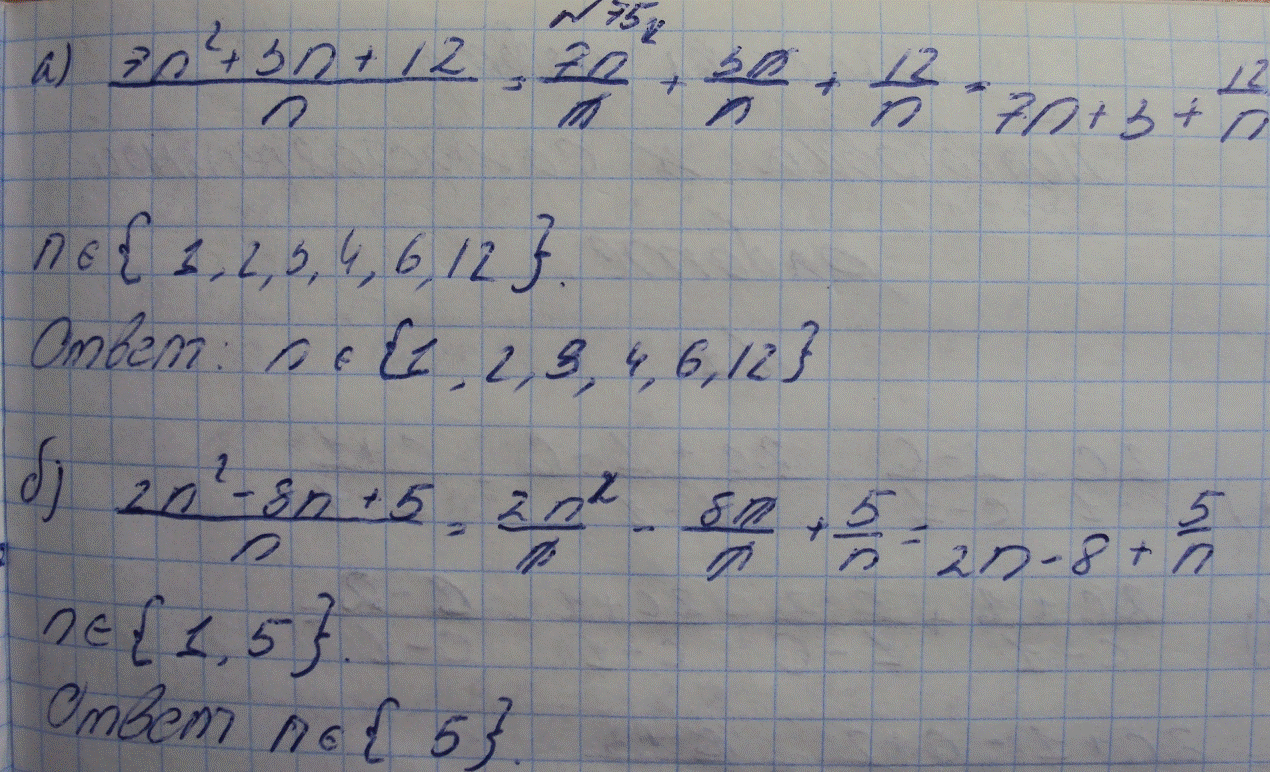 № 75
а) (7n² + 3n + 12)/n = 7n²/n + 3n/n + 12/n = 7n + 3 + 12/n
n ∈ { 1, 2, 3, 4, 6, 12 }.
Ответ: n ∈ {1, 2, 3, 4, 6, 12}
б) (2n² - 8n + 5)/n = 2n²/n - 8n/n + 5/n = 2n - 8 + 5/n
n ∈ { 1, 5 }.
Ответ n ∈ { 5 }.